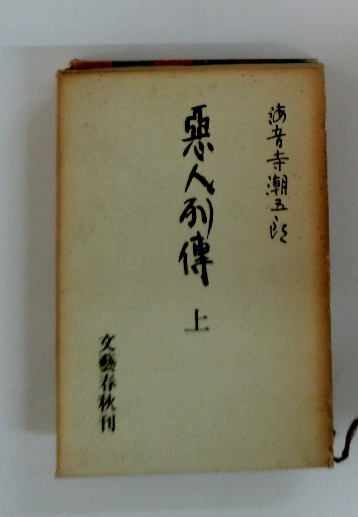 海音寺潮五郎
惡人列傳
上
文藝春秋刊